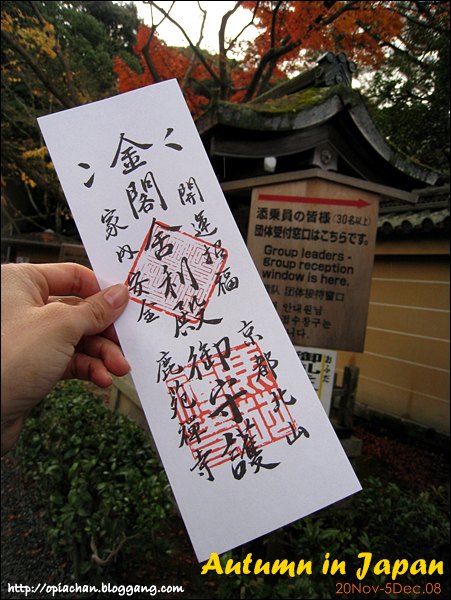 開運招福
金閣舎利殿御守護
家内安全
京都北山
鹿苑禅寺
添乗員の皆様(30名以上)
団体受付窓口はこちらです。
Group leaders -
group reception
window is here.
团体接待窗口
おふだ
Autumn in Japan
20Nov-5Dec.08
http://opiachan.bloggang.com